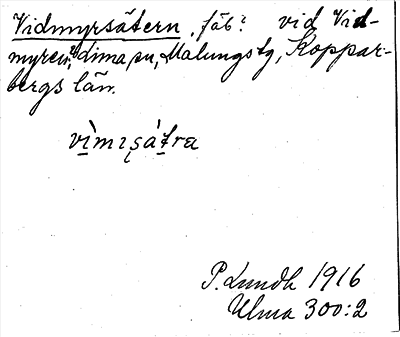 Vidmyrsätern, fäb? vid Vid-
myren, Lima sn, Malungs tg, Koppar-
bergs län.
vìmısàtra
P. Lundh 1916
Ulma 300:2